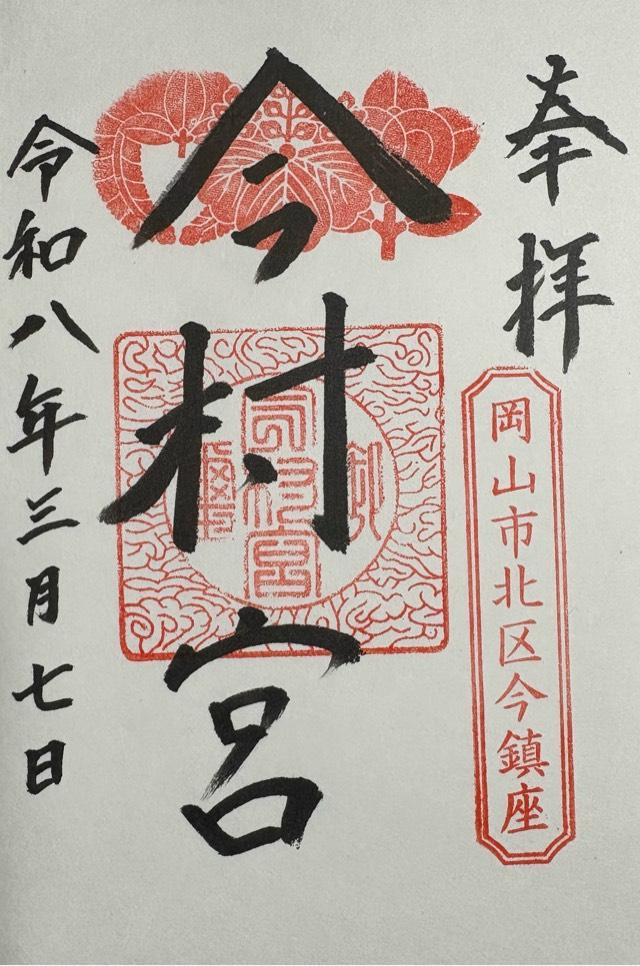 奉拝
岡山市北区今鎮座
今村宮
令和八年三月七日